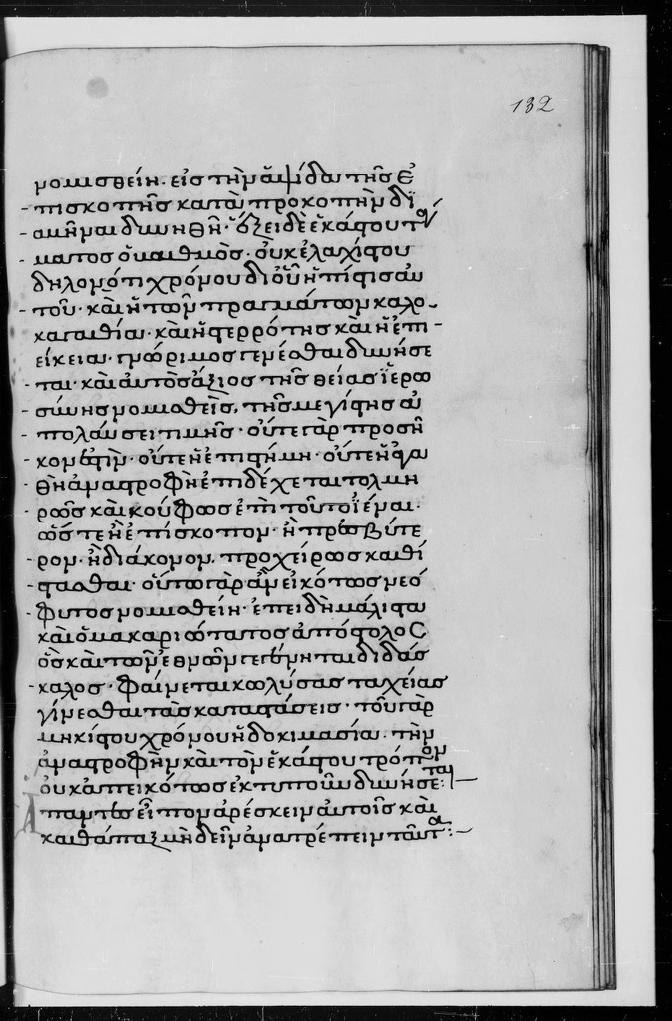 132
νομισθείη· εἰς τὴν ἁψίδα τῆς ἐ
πισκοπῆς κατὰ προκοπὴν δϊ
αβῆναι δυνηθῆ· ἕξει δὲ ἑκάστου τάγ
ματος ὁ βαθμὸς· οὐκ ἐλαχίστου
δηλονότι χρόνου διοὗ ἡ πίστις αὐ
τοῦ· καὶ ἡ τῶν πραγμάτων καλο
καγαθία· καὶ ἡ στερρότης καὶ ἡ ἐπι
είκεια· γνώριμος γενέσθαι δυνήσε
ται· καὶ αὐτὸς ἄξιος τῆς θείας ἱερω
σύνης νομισθεὶς, τῆς μεγίστης ἀ
πολαύσει τιμῆς· οὔτε γὰρ προσῆ
κόν ἐστιν· οὔτε ἡ ἐπιστήμη· οὔτε ἡ ἀγα
θὴ ἀναστροφὴ ἐπιδέχεται τολμη
ρῶς καὶ κούφως ἐπὶ τοῦτο ἰέναι·
ὥστε ἢ ἐπίσκοπον· ἢ πρεσβύτε
ρον· ἢ διάκονον, προχείρως καθί
στασθαι· οὕτω γὰρ ἂν εἰκότως νεό
φυτος νομισθείη· ἐπειδὴ μάλιστα
καὶ ὁ μακαριώτατος ἀπόστολος
ὃς καὶ τῶν ἐθνῶν γεγένηται διδάσ
καλος· φαίνεται κωλύσας ταχείας
γίνεσθαι τὰς καταστάσεις· τοῦ γὰρ
μηκίστου χρόνου ἡ δοκιμασία· τὴν
ἀναστροφὴν καὶ τὸν ἑκάστου τρόπον
οὐκ ἀπεικότως ἐκτυποῦν δυνήσεται:
Ἅπαντες εἶπον ἀρέσκειν αὐτοῖς καὶ
καθάπαξ μὴ δεῖν ἀνατρέπειν ταῦτα: